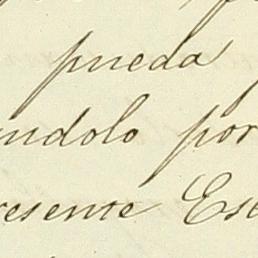 pueda
ndolo por
resente Es